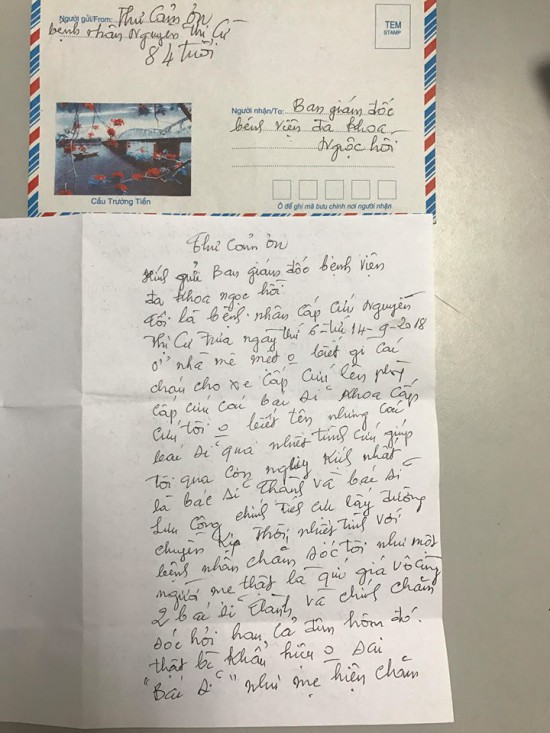 Người gửi/From: Thư Cảm ơn
bệnh nhân Nguyễn Thị Cư
84 tuổi
TEM
STAMP
Người nhận/To: Ban giám đốc
bệnh viện đa khoa
Ngọc hồi
Cầu Trường Tiền
Ô để ghi mã bưu chính nơi người nhận
Thư Cảm ơn
Kính gửi Ban giám đốc bệnh viện
đa khoa ngọc hồi
tôi là bệnh nhân cấp cứu Nguyễn
Thị Cư trưa ngày thứ 6 14-9-2018
ở nhà mê mệt o biết gì các
cháu cho xe cấp cứu lên phòng
cấp cứu các bác sĩ khoa cấp
cứu tôi o biết tên những các
bác sĩ quá nhiệt tình cứu giúp
tôi qua cơn nguy kịch nhất
là bác sĩ Thành và bác sĩ
Lưu Công chính tiếp cứu lấy đường
chuyền kịp thời, nhiệt tình với
bệnh nhân chăm sóc tôi như một
người mẹ thật là quí giá vô cùng
2 bác sĩ Thành và chính chăm
sóc hỏi han cả đêm hôm đó.
thật là khẩu hiệu o sai
"Bác sĩ" như mẹ hiền chăm